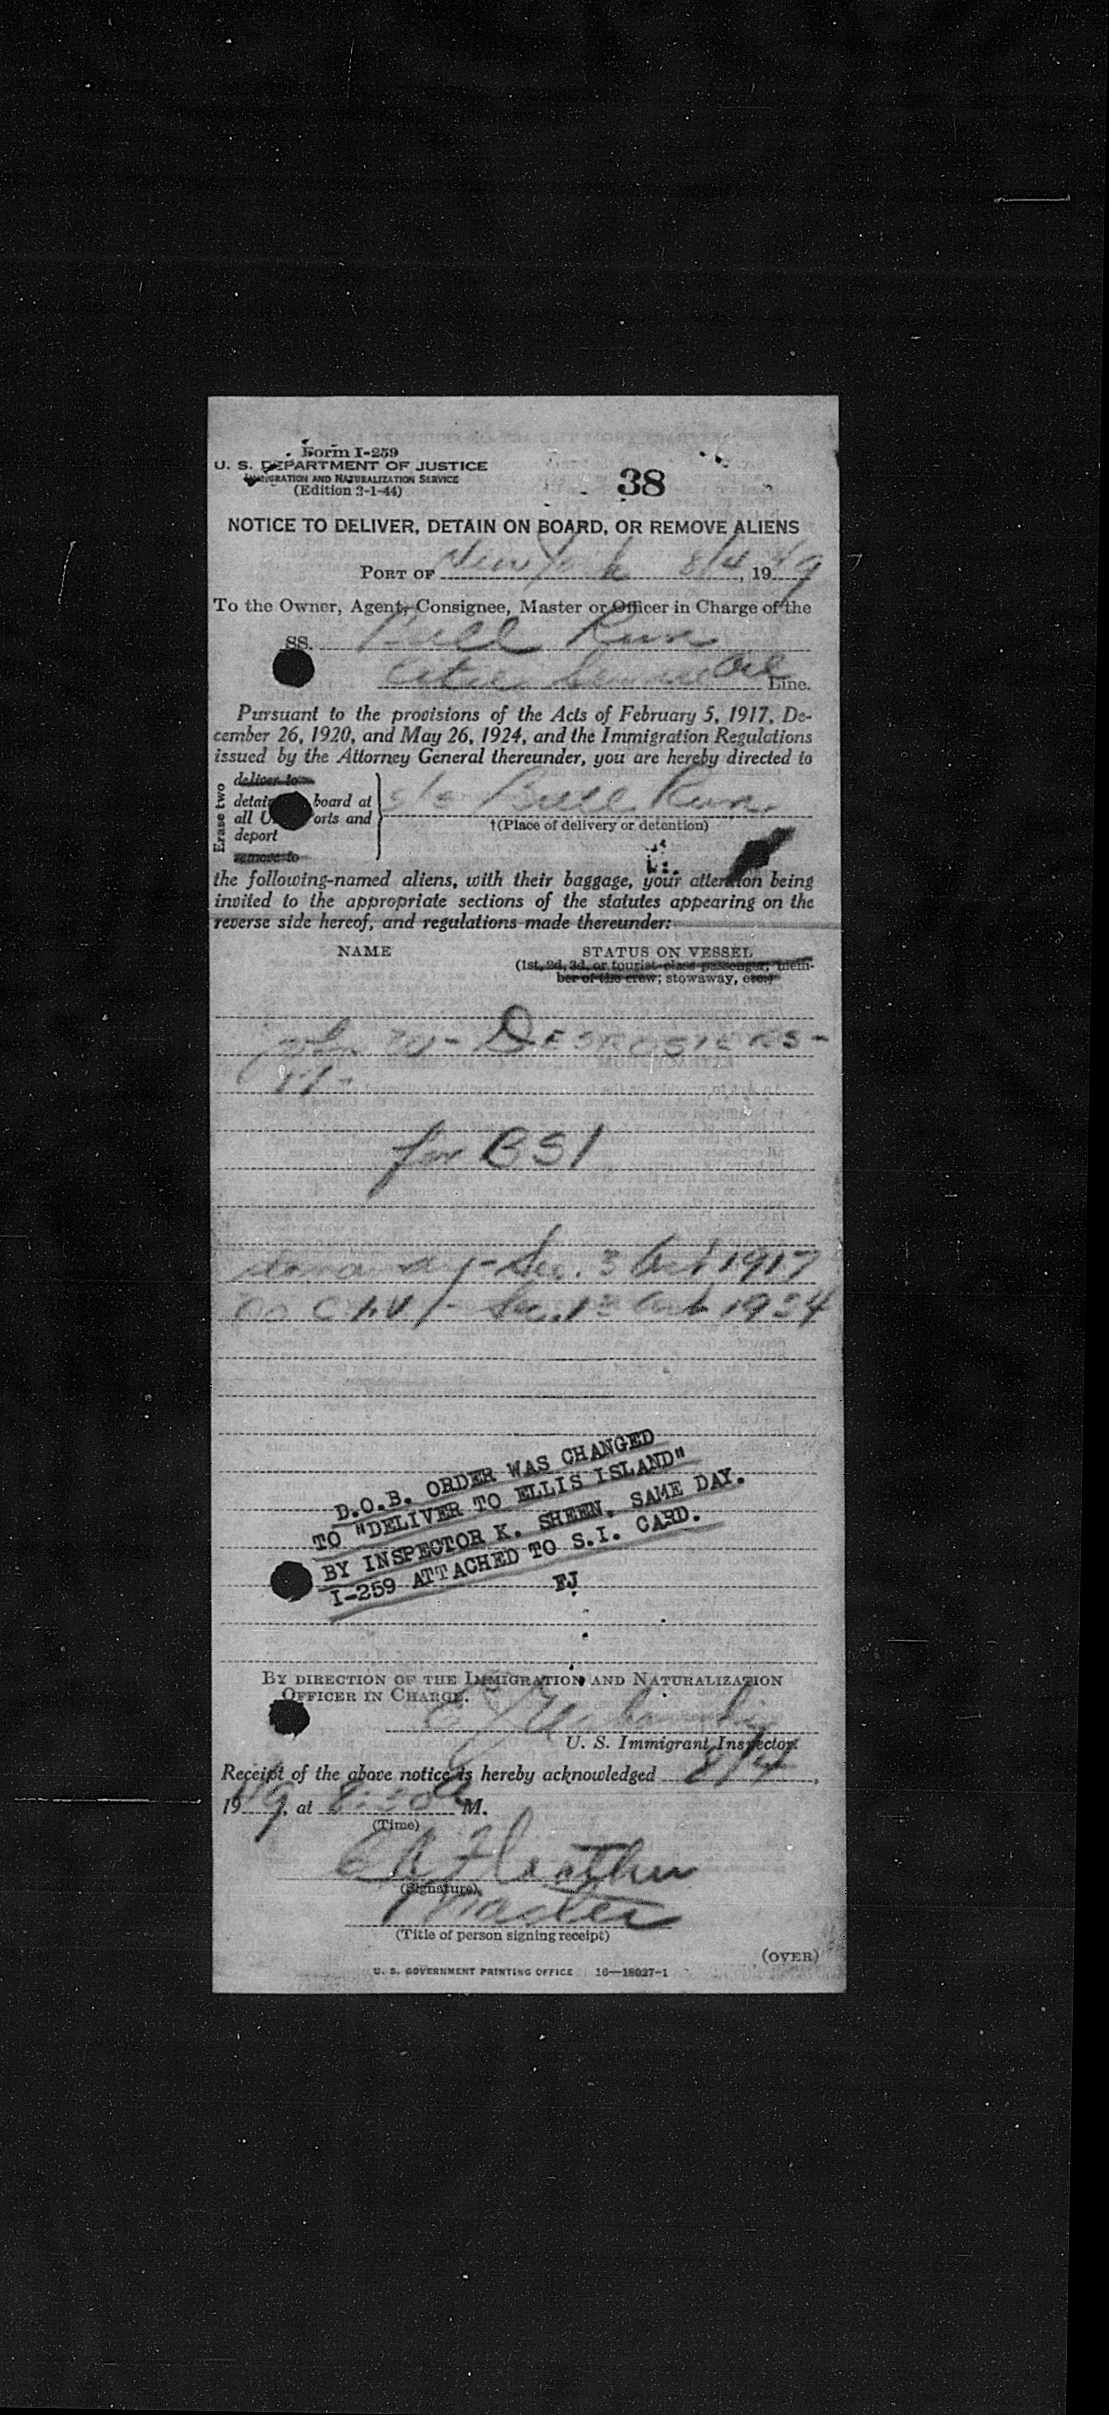 Form I-259
U. S. DEPARTMENT OF JUSTICE
IMMIGRATION AND NATURALIZATION SERVICE
(Edition 3-1-44)
38
NOTICE TO DELIVER, DETAIN ON BOARD, OR REMOVE ALIENS
PORT OF New York 8/4, 1949
To the Owner, Agent, Consignee, Master or Officer in Charge of the
SS. Bull Run
Oil Line.
Pursuant to the provisions of the Acts of February 5, 1917, De-
cember 26, 1920, and May 26, 1924, and the Immigration Regulations
issued by the Attorney General thereunder, you are hereby directed to
Erase two
deliver to
detain board at
all U. orts and
deport
remove to
s/s Bull Run
†(Place of delivery or detention)
the following-named aliens, with their baggage, your attention being
invited to the appropriate sections of the statutes appearing on the
reverse side hereof, and regulations made thereunder:
NAME
STATUS ON VESSEL
(1st, 2d, 3d, or tourist class passenger; mem-
ber of the crew; stowaway, etc.)
John W- DESROSIERS-
for BSI
Stowaway - Sec. 3 Act 1917
no C.I.V / - Sec. 13 Act 1924
D.O.B. ORDER WAS CHANGED
TO "DELIVER TO ELLIS ISLAND"
BY INSPECTOR K. SHEEN, SAME DAY.
I-259 ATTACHED TO S.I. CARD.
FJ
BY DIRECTION OF THE IMMIGRATION AND NATURALIZATION
OFFICER IN CHARGE.
U. S. Immigrant Inspector.
Receipt of the above notice is hereby acknowledged 8/4,
1949, at 8:30 a M.
(Time)
(Signature)
Master
(Title of person signing receipt)
(OVER)
U. S. GOVERNMENT PRINTING OFFICE 16—18027-1